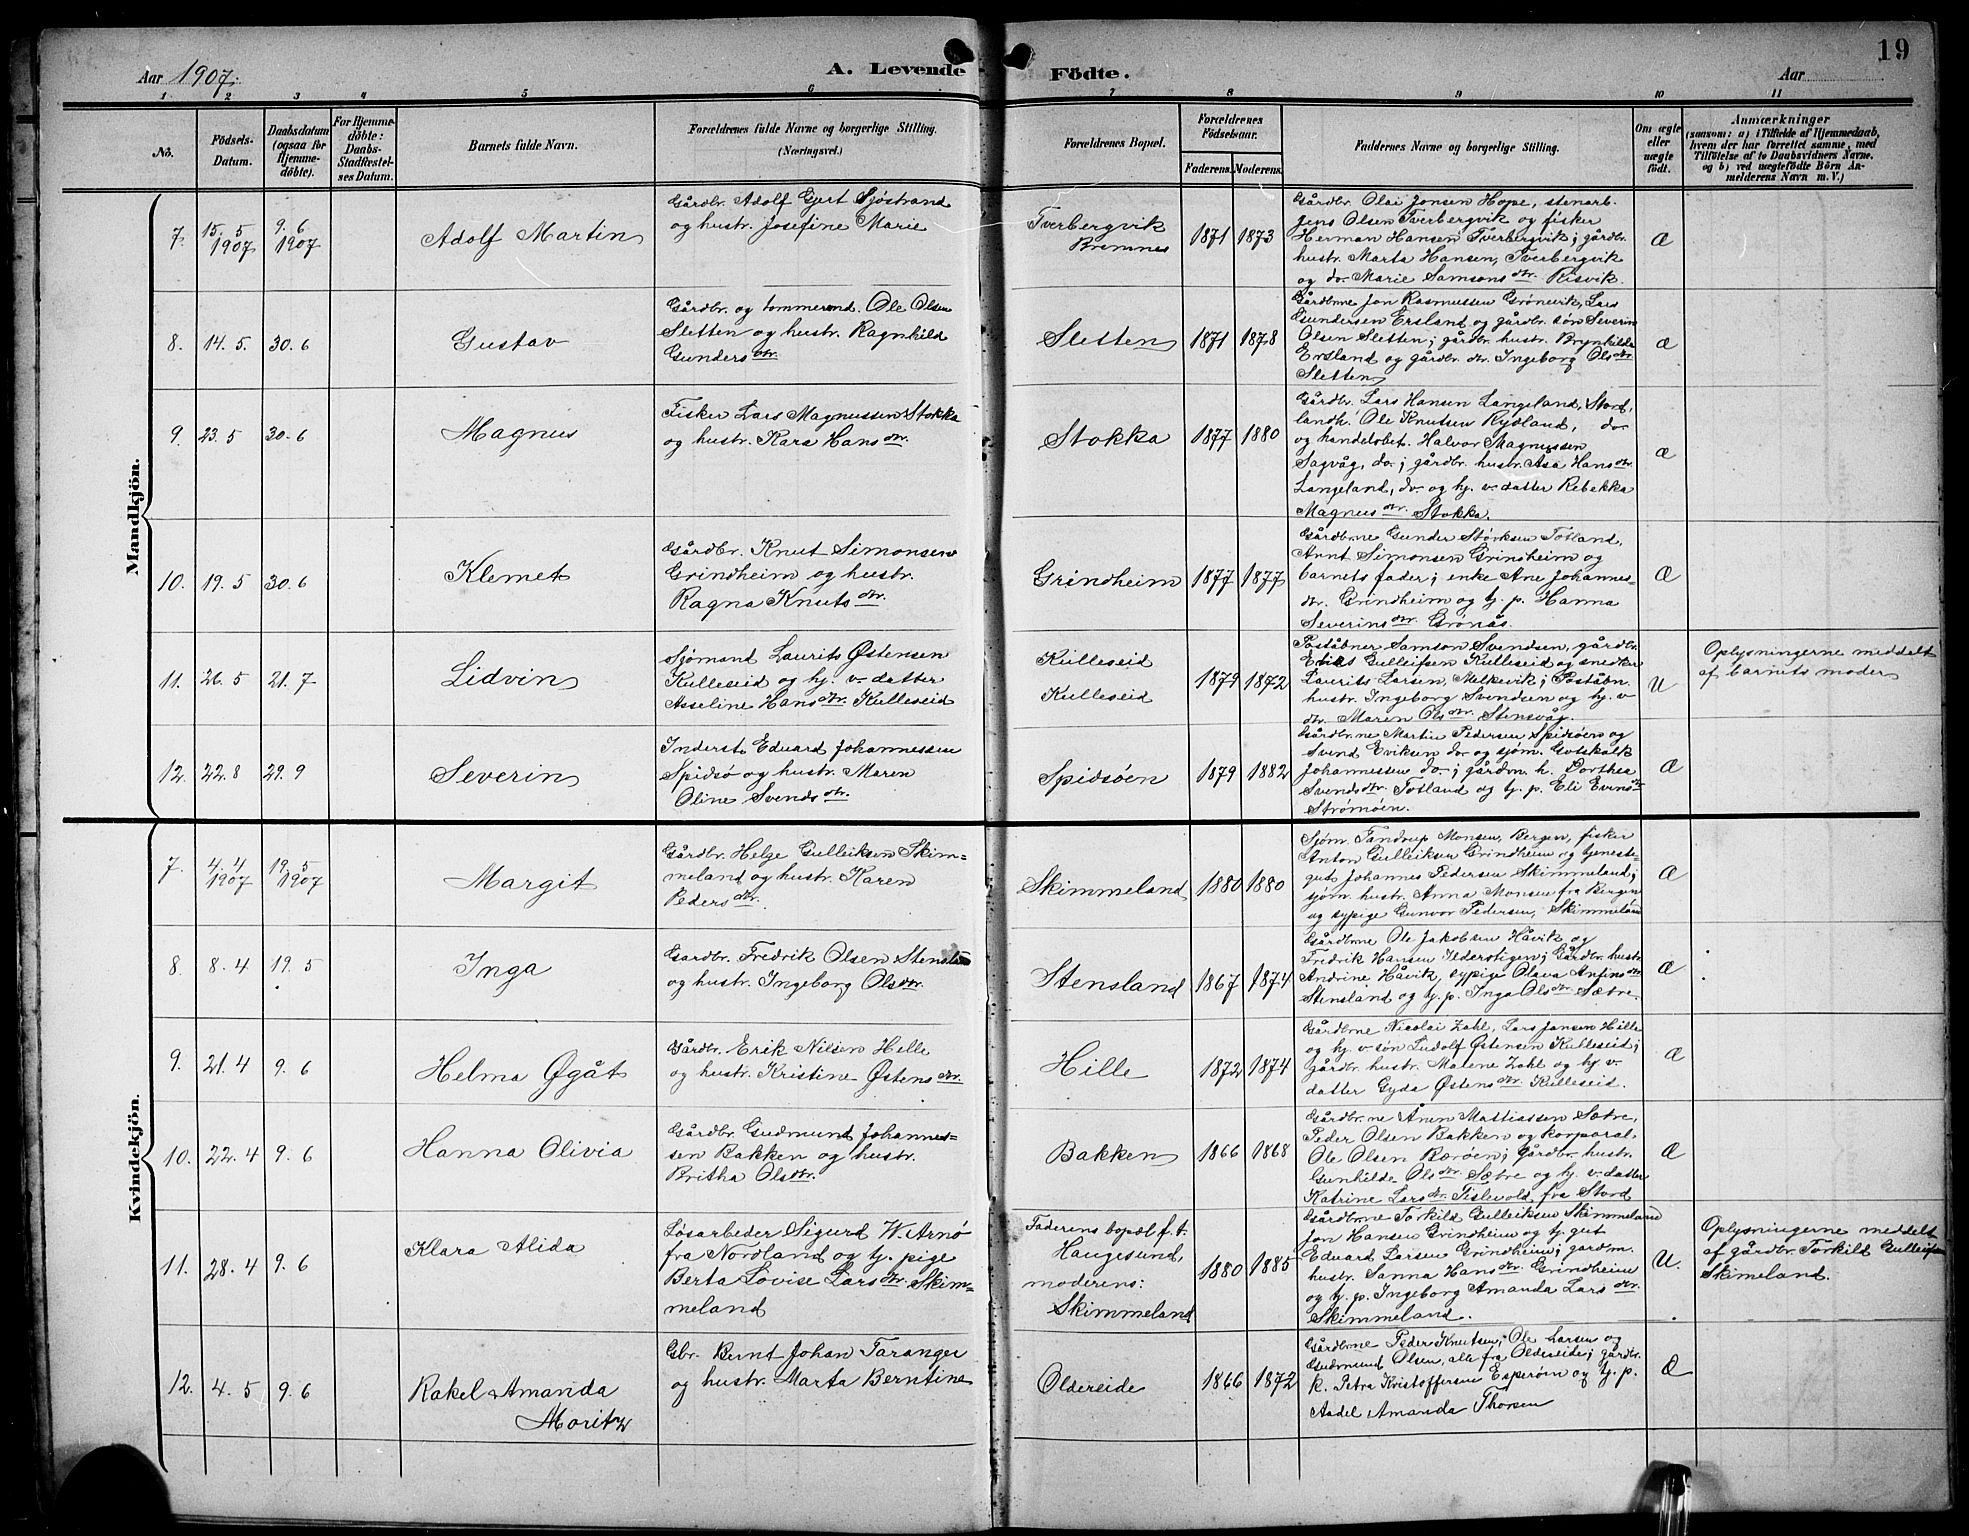 19
Aar 1907.
A. Levende Födte.
Aar
1 2 3 4 5 6 7 8 9 10 11
No.
Födsels-
Datum.
Daabsdatum
(ogsaa for
Hjemme-
döbte).
For Hjemme-
döbte:
Daabs-
Stadfæstel-
ses Datum.
Barnets fulde Navn.
Forældrenes fulde Navne og borgerlige Stilling.
(Næringsvei.)
Forældrenes Bopæl.
Forældrenes
Födselsaar.
Faderens. Moderens.
Faddernes Navne og borgerlige Stilling.
Om ægte
eller
uægte
født.
Anmærkninger
(saasom: a) i Tilfælde af Hjemmedaab,
hvem der har forrettet samme, med
Tilföielse af to Daabsvidners Navne,
og b) ved uægtefödte Börn An-
melderens Navn m. V.)
Mandkjön.
7. 15. 5 1907 9. 6 1907
Adolf Martin
Gårdbr. Adolf Gjert Sjøstrand
og hustr. Josefine Marie
Tverbergvik
Bremnes
1871 1873
Gårdbr. Olai Jonsen Hope, stenarb.
Jens Olsen Tverbergvik og fisker
Herman Hansen Tverbergvik; gårdbr.
hustr. Marta Hansen, Tverbergvik
og do. Marie Samsonsdtr. Risvik.
Æ
8. 14. 5. 30. 6
Gustav
Gårdbr. og tømmermd. Ole Olsen
Sletten og hustr. Ragnhild
Gundersdtr.
Sletten
1871 1878
Gårdbrne Jon Rasmussen Grønevik, Lars
Gundersen Ersland og gårdbr. søn Severin
Olsen Sletten; gårdbr. hustr. Brynhilde
Ersland og gårdbr. dtr. Ingeborg Olsdtr.
Sletten
Æ
9. 23. 5 30. 6
Magnus
Fisker Lars Magnussen Stokka
og hustr. Kara Hansdtr.
Stokka
1877 1880
Gårdbr. Lars Hansen Langeland, Stord,
landh. Ole Knutsen Rydland, do.
og handelsbet. Halvor Magnussen
Sagvåg, do.; gårdbr. hustr. Åsa Hansdtr.
Langeland, do. og hj. v. datter Rebekka
Magnusdtr. Stokka.
Æ
10. 19. 5 30. 6
Klemet
Gårdbr. Knut Simonsen
Grindheim og hustr.
Ragna Knutsdtr.
Grindheim
1877 1877
Gårdbrne Gunder Størksen Totland,
Arnt Simonsen Grindheim og
barnets fader; enke Ane Johannes-
dtr. Grindheim og tj. p. Hanna
Severinsdtr. Grønås.
Æ
11. 26. 5 21. 7
Lidvin
Sjømand Laurits Østensen
Kulleseid og hj. v. datter
Asseline Hansdtr. Kulleseid
Kulleseid
Kulleseid
1879 1872
Poståbner Samson Svendsen, gårdbr.
Eriks Gulleifsen Kulleseid og snedker
Laurits Larsen, Melkevik; Poståbn.
hustr. Ingeborg Svendsen og hj. v.
dtr. Maren Olsdtr. Stensvåg.
U
Oplysningerne meddelt
af barnets moder
12. 22. 8 29. 9
Severin
Inderst. Eduard Johannessen
Spidsø og hustr. Maren
Oline Svendsdtr.
Spidsøen
1879 1882
Gårdbr.ne Martin Pedersen Spidsøen og
Svend Eriksen do. og sjøm. Gotskalk
Johannessen do.; gårdm. h. Dorthea
Svendsdtr. Totland og tj. p. Eli Evensdtr.
Strømøen.
Æ
Kvindekjön.
7. 4. 4 1907 19. 5 1907
Margit
Gårdbr. Helge Gulleiksen Skim-
meland og hustr. Karen
Pedersdtr.
Skimmeland
1880 1880
Sjøm. Tandrup Monsen, Bergen, fisker
Anton Gulleiksen Grindheim og tjeneste-
gut Johannes Pedersen Skimmeland;
sjøm. hustr. Anna Monsen fra Bergen
og sypige Gunvor Pedersen, Skimmeland
Æ
8. 8. 4 19. 5
Inga
Gårdbr. Fredrik Olsen
og hustr. Ingeborg Olsdtr.
Stensland
1867 1874
Gårdbrne Ole Jakobsen Håvik og
Fredrik Hansen Ilderstigen; Gårdbr. hustr.
Andrine Håvik, sypige Olava Anfinsdtr.
Stensland og tj. p. Inga Olsdtr. Sætre.
Æ
9. 21. 4 9. 6
Helma Øgåt
Gårdbr. Erik Nilsen Hille
og hustr. Kristine Østensdtr.
Hille
1872 1874
Gårdbrne Nicolai Zahl, Lars Jansen Hille
og hj. v. søn Ludolf Østensen Kulleseid;
gårdbr. hustr. Malene Zahl og hj. v.
datter Gyda Østensdtr. Kulleseid.
Æ
10. 22. 4 9. 6
Hanna Olivia
Gårdbr. Gudmund Johannes-
sen Bakken og hustr.
Britha Olsdtr.
Bakken
1866 1868
Gårdbr.ne Ånen Mattiassen Sætre,
Peder Olsen Bakken og korporal
Ole Olsen Bærøen; Gårdbr. hustr.
Gunhilde Olsdtr. Sætre og hj. v. datter
Katrine Larsdtr. Tislevold, fra Stord
Æ
11. 28. 4 9. 6
Klara Alida
Løsarbeder Sigurd W. Arnø
fra Nordland og tj. pige
Berta Lovise Larsdtr. Skim-
meland
Faderens bopæl f. t.
Haugesund,
moderens:
Skimmeland
1880 1885
Gårdbrne Torkild Gulleiksen Skimmeland
Jon Hansen Grindheim og tj. gut
Eduard Larsen Grindheim; gårdm.
hustr. Sanna Hansdtr. Grindheim
og tj. p. Ingeborg Amanda Larsdtr.
Skimmeland.
U.
Oplysningerne meddelt
af gårdbr. Torkild Gulleiksen
Skimeland.
12. 4. 5 9. 6
Rakel Amanda
Moritz
Gbr. Bernt Johan Taranger
og hustr. Marta Berntine
Oldereide
1866 1872
Gårdbrne Peder Knutsen, Ole Larsen og
Gudmund Olsen, alle fra Oldereide; gårdbr.
k. Petra Kristoffersen Esperøen og tj. p.
Aadel Amanda Thorsen
Æ